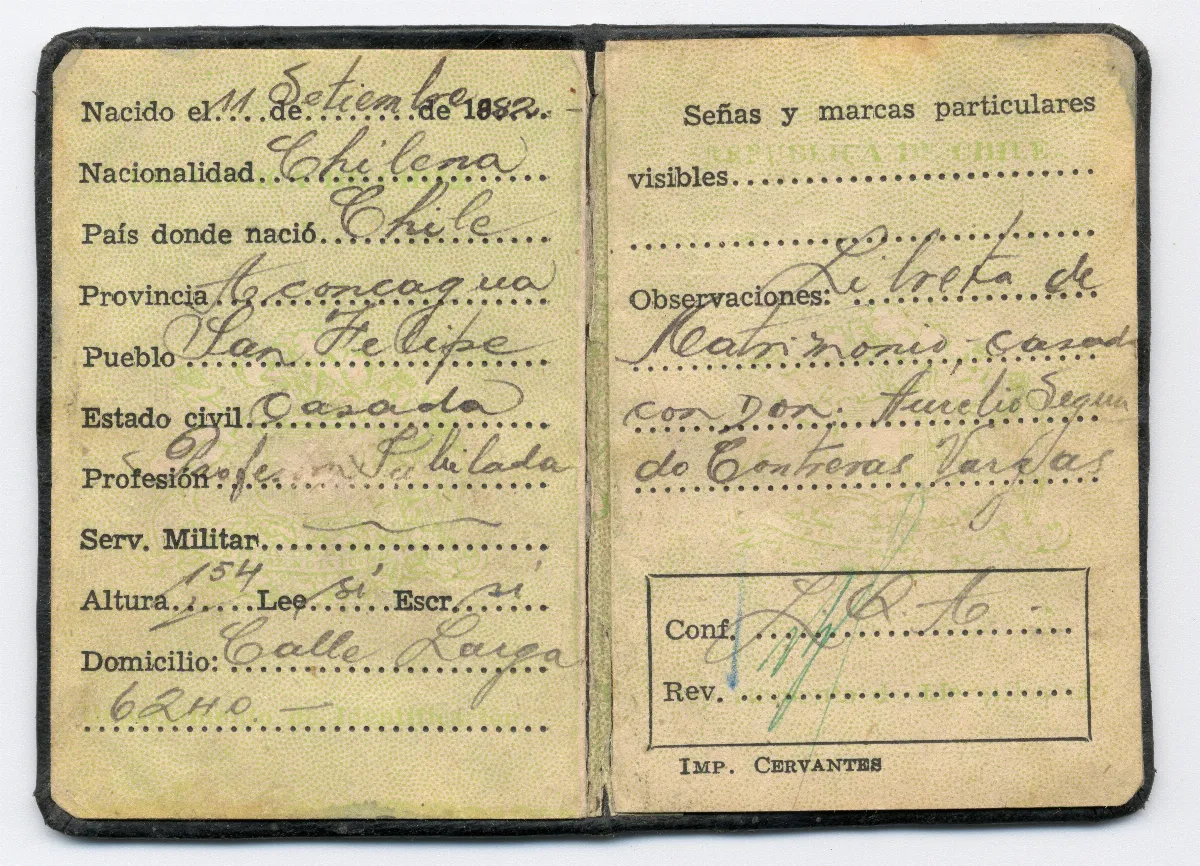 Nacido el 11 de Setiembre de 1882.
Nacionalidad Chilena
País donde nació Chile
Provincia Aconcagua
Pueblo San Felipe
Estado civil Casada
Profesión Profesora Jubilada
Serv. Militar
Altura 1 154 Lee si Escr. si
Domicilio: Calle Larga
6240. —
Señas y marcas particulares
REPUBLICA DE CHILE
visibles
Observaciones: Libreta de
Matrimonio, casada
con Don. Aurelio Segun
do Contreras Vargas
Conf. L. Q. A.
Rev.
IMP. CERVANTES